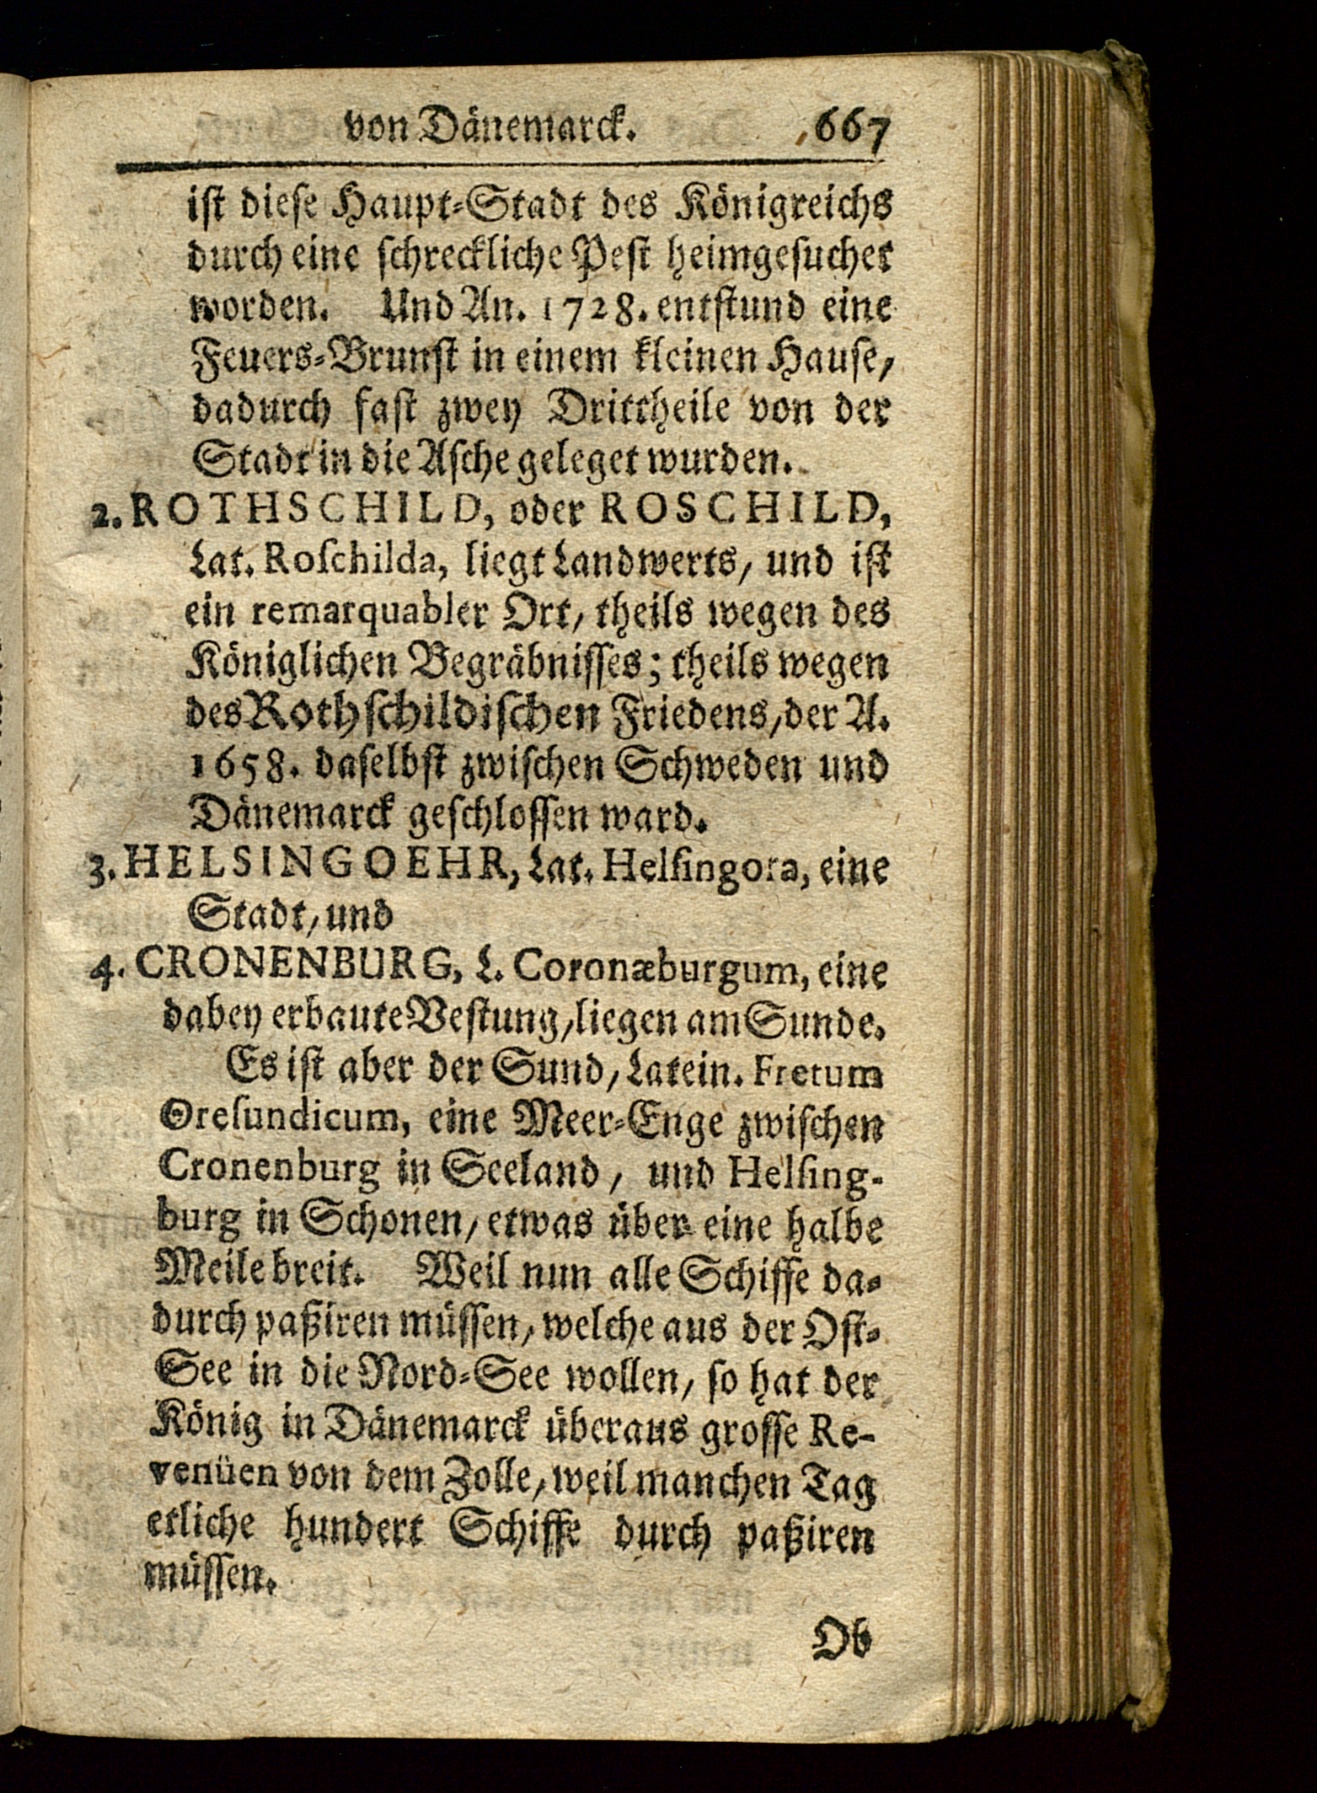 von Dänemarck. 667
ist diese Haupt-Stadt des Königreichs
durch eine schreckliche Pest heimgesuchet
worden. Und An. 1728. entstund eine
Feuers-Brunst in einem kleinen Hause,
dadurch fast zwey Drittheile von der
Stadt in die Asche geleget wurden.
2. ROTHSCHILD, oder ROSCHILD,
Lat. Roschilda, liegt Landwerts, und ist
ein remarquabler Ort, theils wegen des
Königlichen Begräbnisses; theils wegen
des Rothschildischen Friedens, der A.
1658. daselbst zwischen Schweden und
Dänemarck geschlossen ward.
3. HELSINGOEHR, Lat. Helsingora, eine
Stadt, und
4. CRONENBURG, L. Coronæburgum, eine
dabey erbaute Vestung, liegen am Sunde.
Es ist aber der Sund, Latein. Fretum
Oresundicum, eine Meer-Enge zwischen
Cronenburg in Seeland, und Helsing-
burg in Schonen, etwas über eine halbe
Meile breit. Weil nun alle Schiffe da-
durch paßiren müssen, welche aus der Ost-
See in die Nord-See wollen, so hat der
König in Dänemarck überaus grosse Re-
venüen von dem Zolle, weil manchen Tag
etliche hundert Schiffe durch paßiren
müssen.
Ob